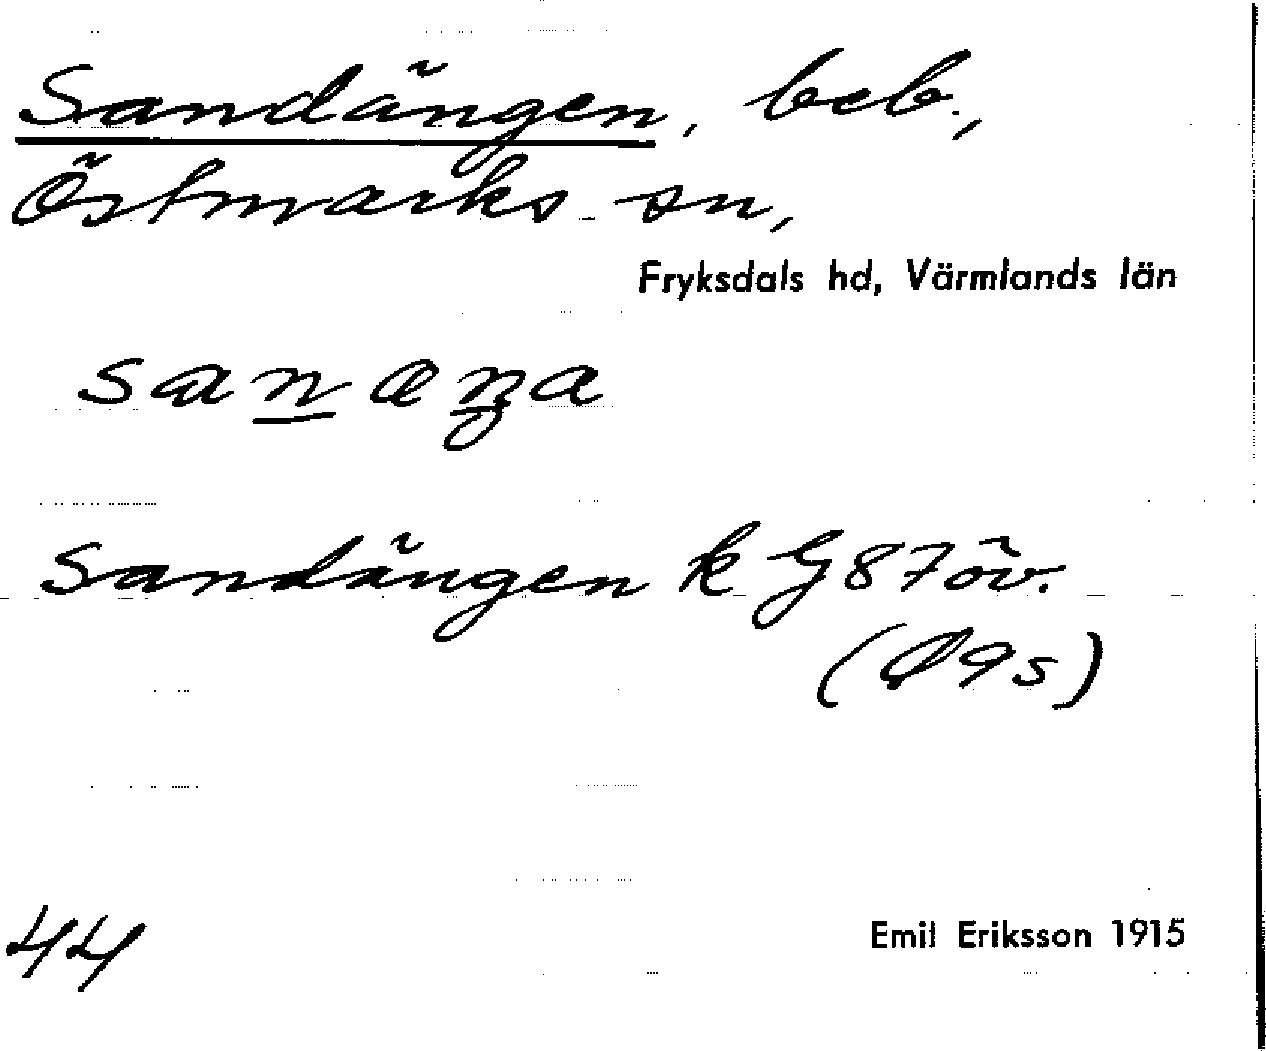 Sandängen, beb.,
Östmarks sn,
Fryksdals hd, Värmlands län
Sandängen k G 87 öv.
44
Emil Eriksson 1915